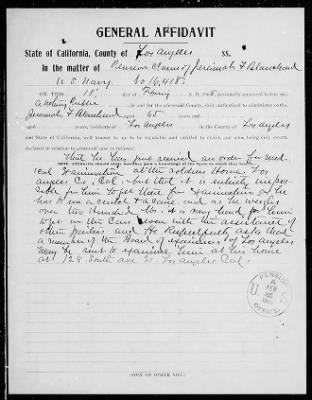 GENERAL AFFIDAVIT
State of California, County of Los Angeles SS.
In the matter of Pension Claim of Jeremiah F Blanchard
U S Navy No 16,418
On this 18 day of A. D. 1905 personally appeared before me
a Notary Public in and for the aforesaid County, duly authorized to administer oaths,
Jeremiah F Blanchard aged 65 years,
resident of Los Angeles in the County of Los Angeles
and State of California, well known to me to be reputable and entitled to credit, and who, being duly sworn,
declared in relation to the aforesaid case as follows:
That he has just received an order for med
ical Examination at the soldiers Home. Los
Angeles Co, Cal. but that it is entirely impos
sible for him to get there for Examination as he
has to use a crutch & a cane, and as he weighs
over two hundred lbs. it is very hard for him
to get on the Cars even with the assistance of
other parties and He Respectfully asks that
a member of the Board of examiners of Los Angeles
may be sent to examine him at his home
at 128 South ave Los Angeles Cal.
PENSION
U. S.
FEB
25
OFFICE
(SIGN ON OTHER SIDE)